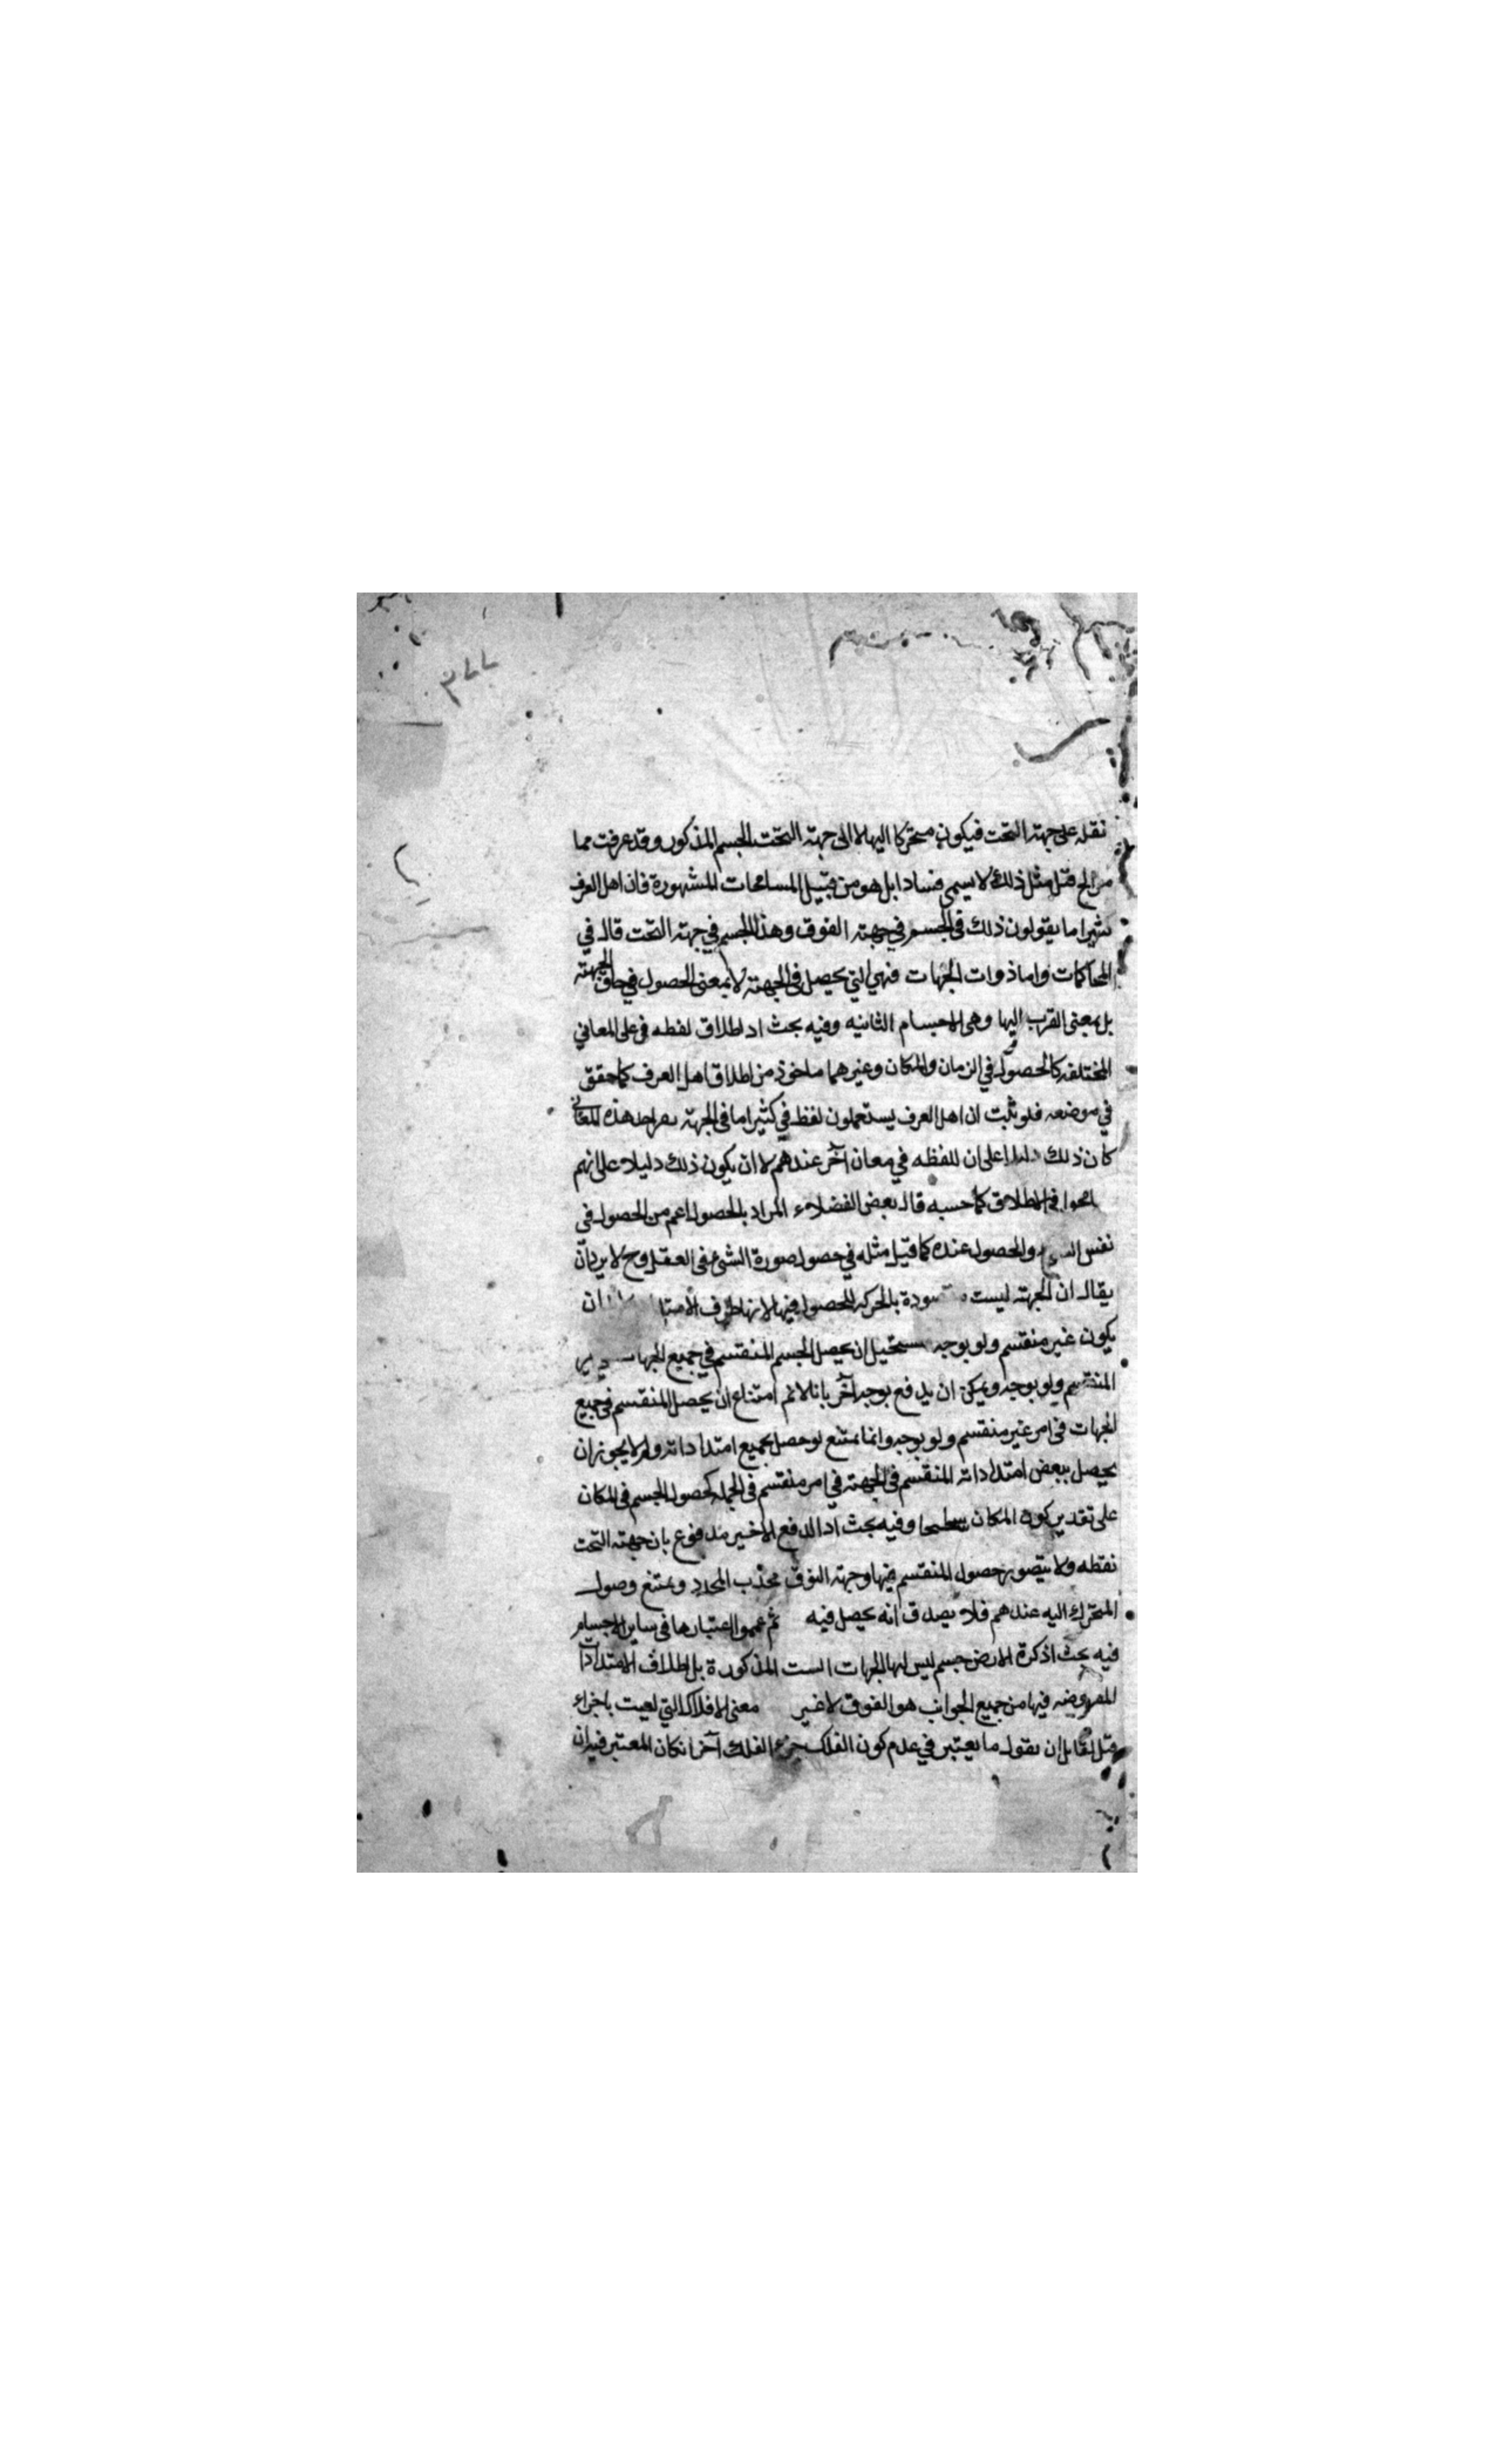 ٣٧٧
نقله على جهة التحت فيكون متحركا اليها لا الى جهة التحت للجسم المذكور وقد عرفت مما
من الح قبل مثل ذلك لا يسمى فسادا بل هو من قبيل المسامحات المشهورة فان اهل العرف
كثيرا ما يقولون ذلك في الجسم في جهة الفوق وهذا الجسم في جهة التحت قال في
المحاكمات واما ذوات الجهات فهي التي يحصل في الجهة لا بمعنى الحصول في حاق الجهة
بل بمعنى القرب اليها وهي الاجسام الثانيه وفيه بحث اذ اطلاق لفظه في على المعاني
المختلفه كالحصول في الزمان والمكان وغيرهما ماخوذ من اطلاق اهل العرف كما حقق
في موضعه فلو ثبت ان اهل العرف يستعملون لفظ في كثيرا ما في الجهة هذه المعانى
كان ذلك دليلا على ان للفظه في معان آخر عندهم لا ان يكون ذلك دليلا على انهم
في الاطلاق كما حسبه قال بعض الفضلاء المراد بالحصول اعم من الحصول في
نفس الشيء والحصول عنده كما قيل مثله في حصول صورة الشئ في العقل وح لا يرد ان
يقال ان الجهة ليست مقصودة بالحركه للحصول فيها لانها طرف الامتداد ان
يكون غير منقسم ولو بوجه يستحيل ان يحصل الجسم المنقسم في جميع الجهات
المنقسم ولو بوجه ويمكن ان يدفع بوجه آخر بانا لا نم امتناع ان يحصل المنقسم في جميع
الجهات في امر غير منقسم ولو بوجه وانما يمتنع لو حصل بجميع امتداداته ولم لا يجوز ان
يحصل ببعض امتداداته المنقسم في الجهة في امر منقسم في الجمله كحصول الجسم في المكان
على تقدير كون المكان سطحا وفيه بحث اذ الدفع الاخير مدفوع بان جهة التحت
نقطه ولا يتصور حصول المنقسم فيها وجهة الفوق محدب المحدد ويمتنع وصول
المتحرك اليه عندهم فلا يصدق انه يحصل فيه ثم عمموا اعتبارها في ساير الاجسام
فيه بحث اذ كرة الارض جسم ليس لها الجهات الست المذكورة بل اطلاق الامتدادات
المفروضه فيها من جميع الجوانب هو الفوق لا غير معنى الافلاك التي ليست باجزاء
قيل لقايل ان يقول ما يعتبر في عدم كون الفلك جزء الفلك آخر ان كان المعتبر فيه ان